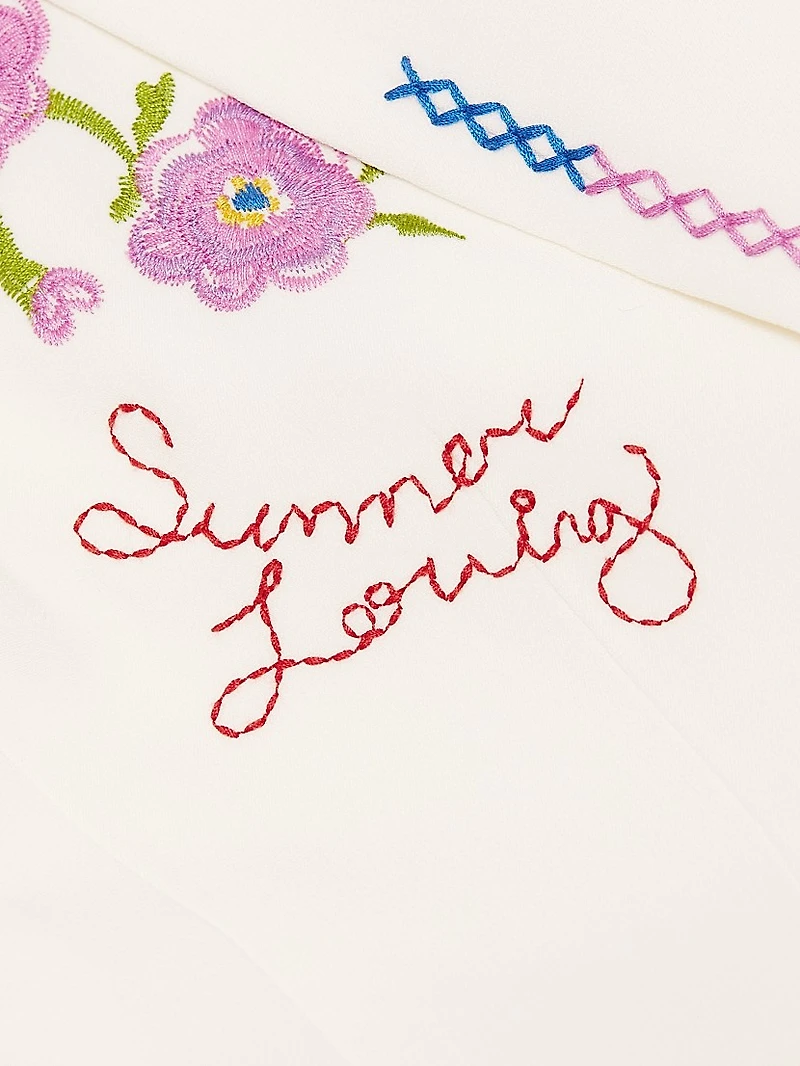 Summer
Loving